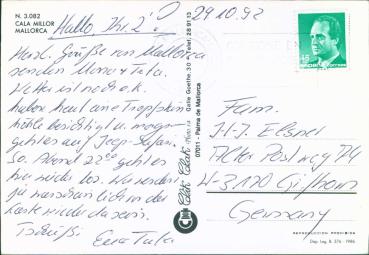 N. 3.082
CALA MILLOR
MALLORCA
Hallo, Ihr 2!
29.10.92
Herzl. Grüße von Mallorca
senden Mona + Tata.
Wetter ist noch o.k.
haben heut eine Tropfstein
höhle besichtigt u. morgen
geht es auf Jeep-Safari.
So. Abend 22⁰⁰ geht es
hier wieder los. Wir werden
ja
wieder da sein.
Tschüßi
Eure Tata
Calle Goethe, 30
Telef. 28 91 13
07011 - Palma de Mallorca
ESPAÑA
CORREOS
Fam.
H-J. Elsner
Alter Postweg 74
W-3170 Gifhorn
Germany
REPRODUCCION PROHIBIDA
Dep. Leg. B. 376 - 1986